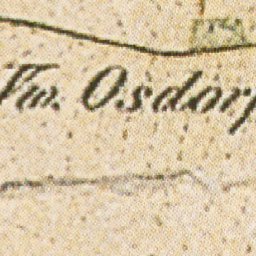 Vw. Osdorf